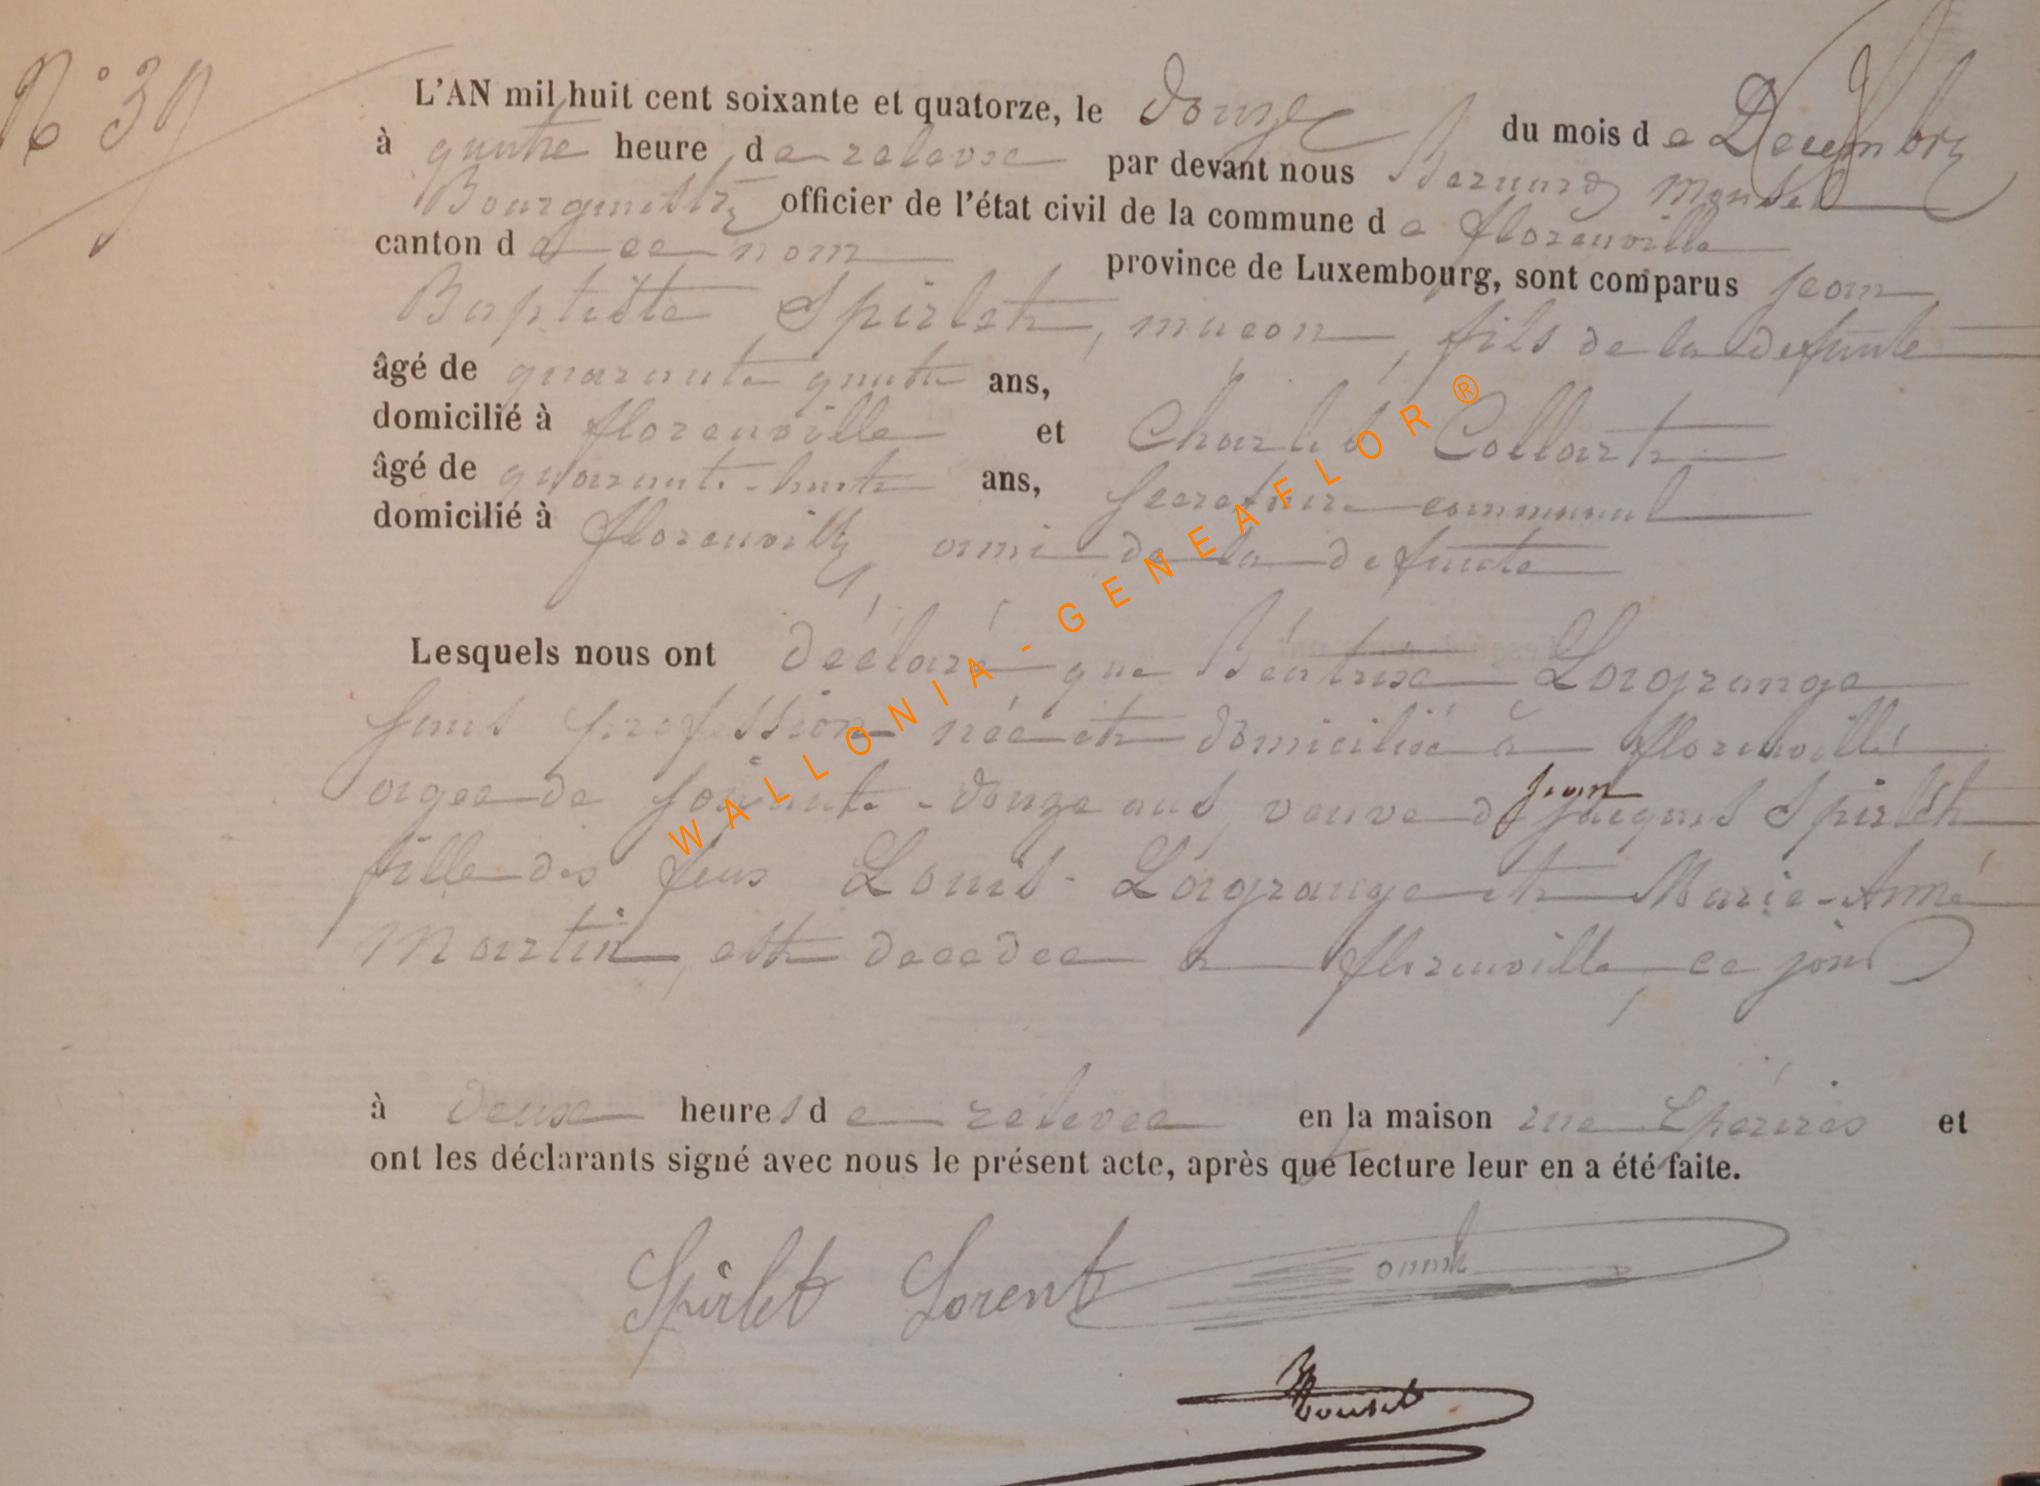 N° 39
L'AN mil huit cent soixante et quatorze, le douze du mois de Decembre
à quatre heure de relevée par devant nous Bernard Monset
Bourgmestre officier de l'état civil de la commune de florenville
canton de ce nom province de Luxembourg, sont comparus jean
Baptiste Spirlet, maçon, fils de la defunte
âgé de quarante quatre ans,
domicilié à florenville et Charles Collart
âgé de quarante-huit ans, secretaire communal
domicilié à florenville, ami de la defunte
Lesquels nous ont déclaré que Béatrix Lagrange
sans profession née et domiciliée à florenville
agee de soixante-douze ans, veuve de jean jacques Spirlet
fille des feus Louis Lagrange et Marie-Anne
Martin, est decedee a florenville, ce jour
à deux heures de relevee en la maison rue et
ont les déclarants signé avec nous le présent acte, après que lecture leur en a été faite.
Spirlet Lorent
Monset
WALLONIA-GENEAFLOR®